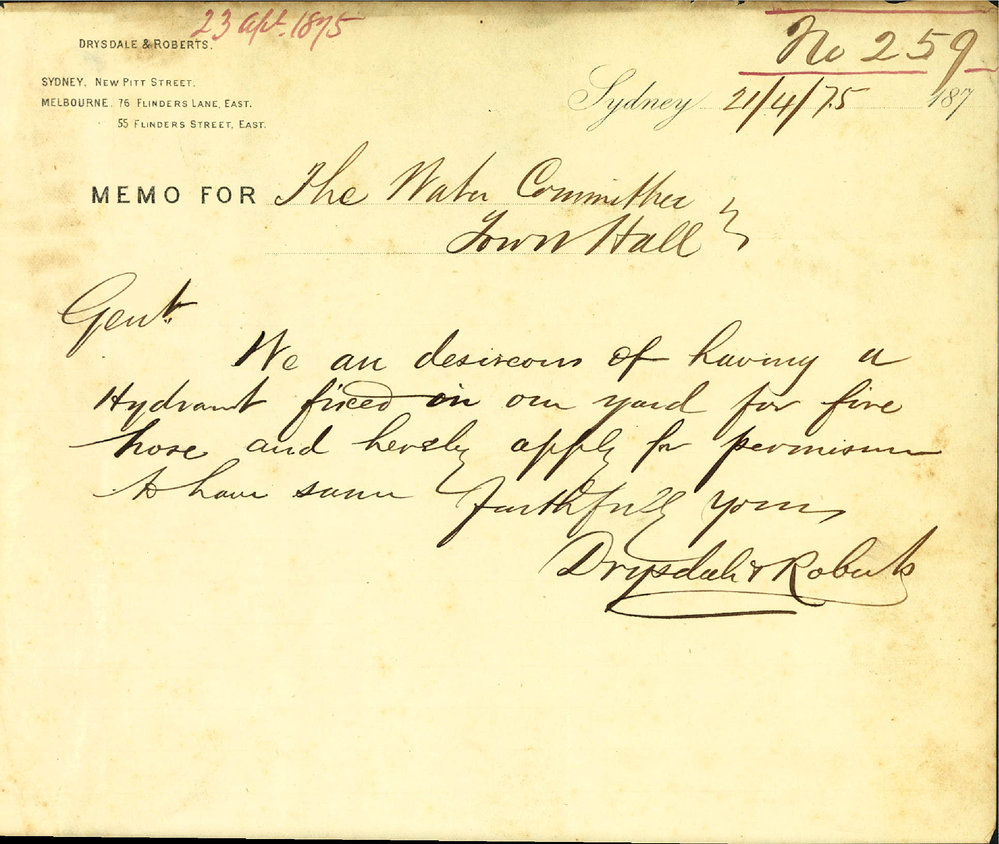 23 Apl. 1875
No 259
DRYSDALE & ROBERTS.
SYDNEY, NEW PITT STREET.
MELBOURNE, 76 FLINDERS LANE, EAST.
55 FLINDERS STREET, EAST.
Sydney 21/4/75 187
MEMO FOR The Water Committee
Town Hall
Gent.
We are desireous of having a
Hydrant fixed in our yard for fire
hose and hereby apply for permission
to have same Faithfully yours
Drysdale & Roberts